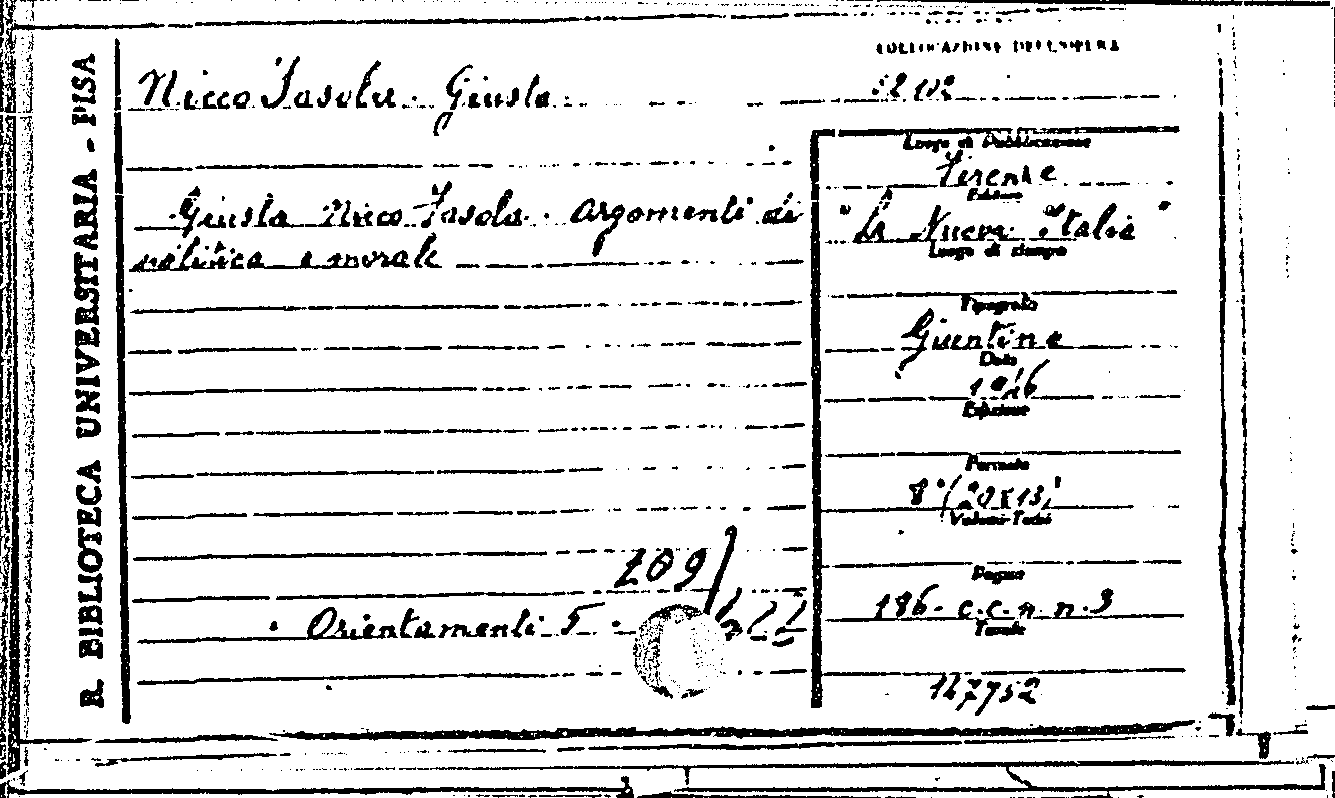 R. BIBLIOTECA UNIVERSITARIA - PISA
COLLOCAZIONE DELL'OPERA
Nicco Fasola Giusta
Giusta Nicco Fasola. Argomenti di
politica e morale
Orientamenti 5.
209
Luogo di Pubblicazione
Firenze
Editore
"La Nuova Italia"
Luogo di stampa
Tipografo
Giuntina
Data
1946
Edizione
Formato
8° (20x13)
Volumi-Tomi
Pagine
186. c.c. n. n. 3
Tavole
147752